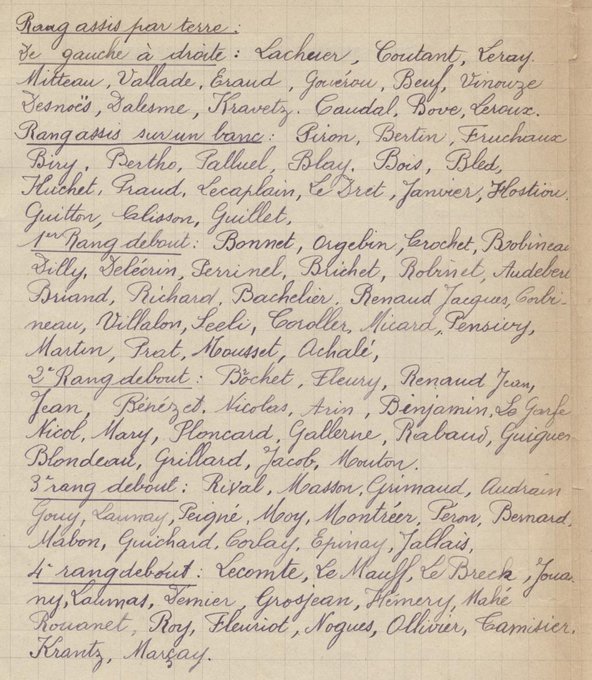 Rang assis par terre :
De gauche à droite : Lacheier, Coutant, Leray.
Mitteau, Vallade, Eraud, Gouérou, Beuf, Vinouze
Desnoës, Dalesme, Kravetz. Caudal, Bove, Leroux.
Rang assis sur un banc : Piron, Bertin, Fruchaux
Biry, Bertho, Palluel, Blay. Bois, Bled,
Huchet, Praud, Lecaplain, Le Dret, Janvier, Hostiou.
Guitton, Clisson, Guillet,
1er Rang debout : Bonnet, Orgebin, Crochet, Bobineau
Dilly, Delécrin, Perrinel, Brichet, Robinet, Audebert
Briand, Richard, Bachelier. Renaud Jacques, Corbi-
neau, Villalon, Seeli, Coroller, Micard, Pensivy,
Martin, Prat, Mousset, Achalé,
2e Rang debout : Bochet, Fleury, Renaud Jean,
Jean, Bénézet. Nicolas, Arin, Benjamin, Le Garfe
Nicol, Mary, Ploncard, Gallerne, Rabaud, Guigue
Blondeau, Grillard, Jacob, Mouton.
3e rang debout : Rival, Masson, Grimaud, Audrain
Gouy, Launay, Peigné, Moy, Montréer, Péron, Bernard,
Mabon, Guichard, Corlay, Epinay, Jallais,
4e rang debout : Lecomte, Le Mauff, Le Breck, Joua-
ny, Laumas, Demier, Grosjean, Hémery, Mahé
Rouanet, Roy, Fleuriot, Nogues, Ollivier, Camisier,
Krantz, Marçay.